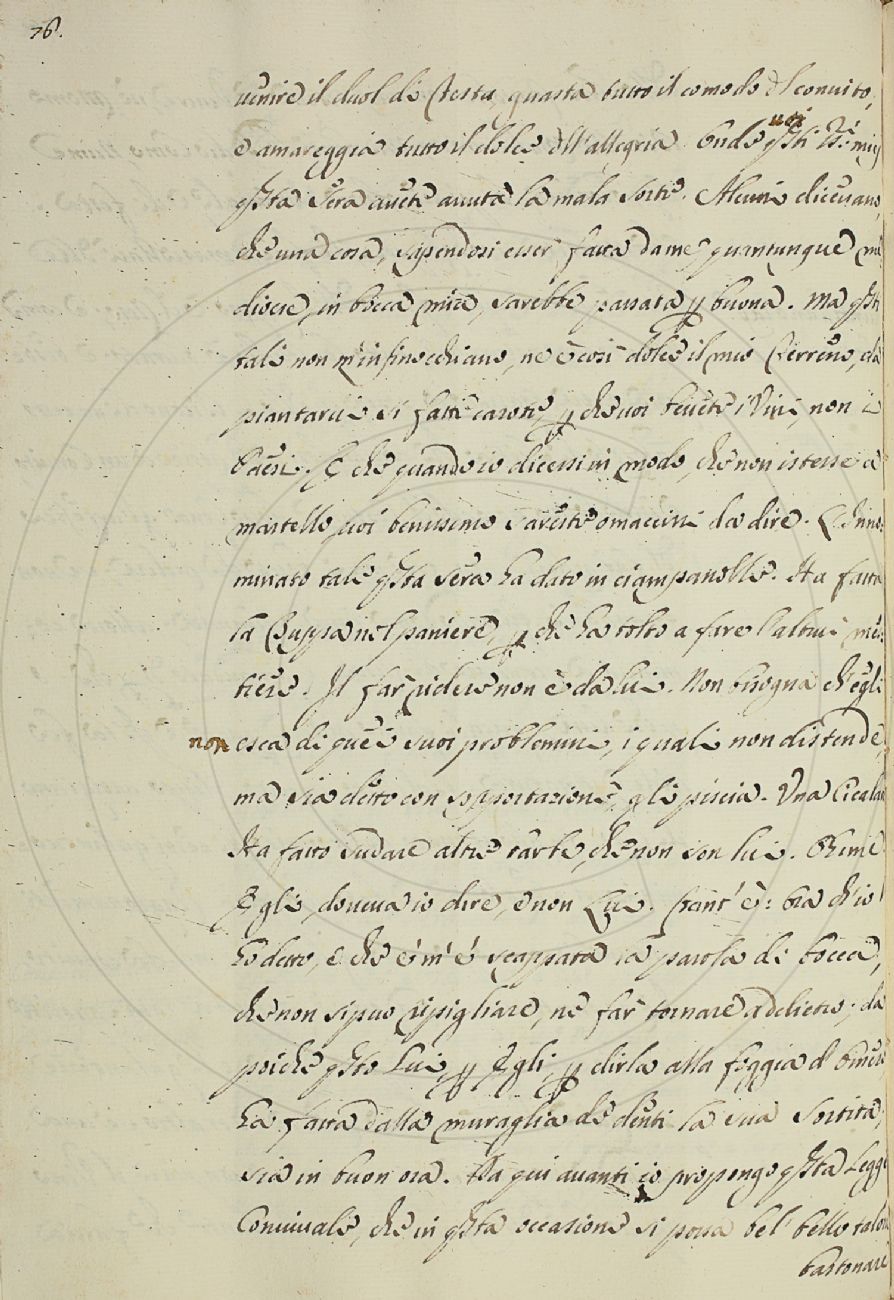 76.
venire il duol di testa, guasta tutto il comodo del convito,
e amareggia tutto il dolce dell'allegria. Onde voi qsti SS.ri miei
qsta sera avete avuta la mala sorte. Alcuni dicevano,
che una cosa, sapendosi esser fatta da me, quantunque me
diocre, in bocca mia, sarebbe passata p buona. Ma qsti
tali non m'infinocchiano, ne è così dolce il mio terreno, da
piantarvi sì fatte carote, p che voi bevete i Vini, non i
Paesi. E che quando io dicessi in modo, che non istesse a
martello, voi benissimo sareste omaccini da dire. L'Inno:
minato tale qsta sera ha dato in ciampanelle. Ha fatta
la Zuppa nel paniere, p che ha tolto a fare l'altrui me:
tiere. Il far ridere non è da lui. Non bisogna ch'egli
non esca di quei suoi problemini, i quali non distende,
ma sia detto con sopportazione, gli piscia. Una Cicalata
Ha fatto sudare altre barbe, che non son lui. Ohimè
Egli, doveva io dire, e non Lui. Tant'è: ora ch'io
ho detto, e che e' m'è scappata la parola di bocca,
che non si può ripigliare, nè far tornare addietro; da
poichè qsto Lui, p Egli, p dirla alla foggia d'Omero
ha fatta dalla muraglia de' denti la sua sortita,
sia in buon ora. Da qui avanti io propongo qsta Legge
Convivale, che in qsta occasione si possa bel bello talora
bastonare